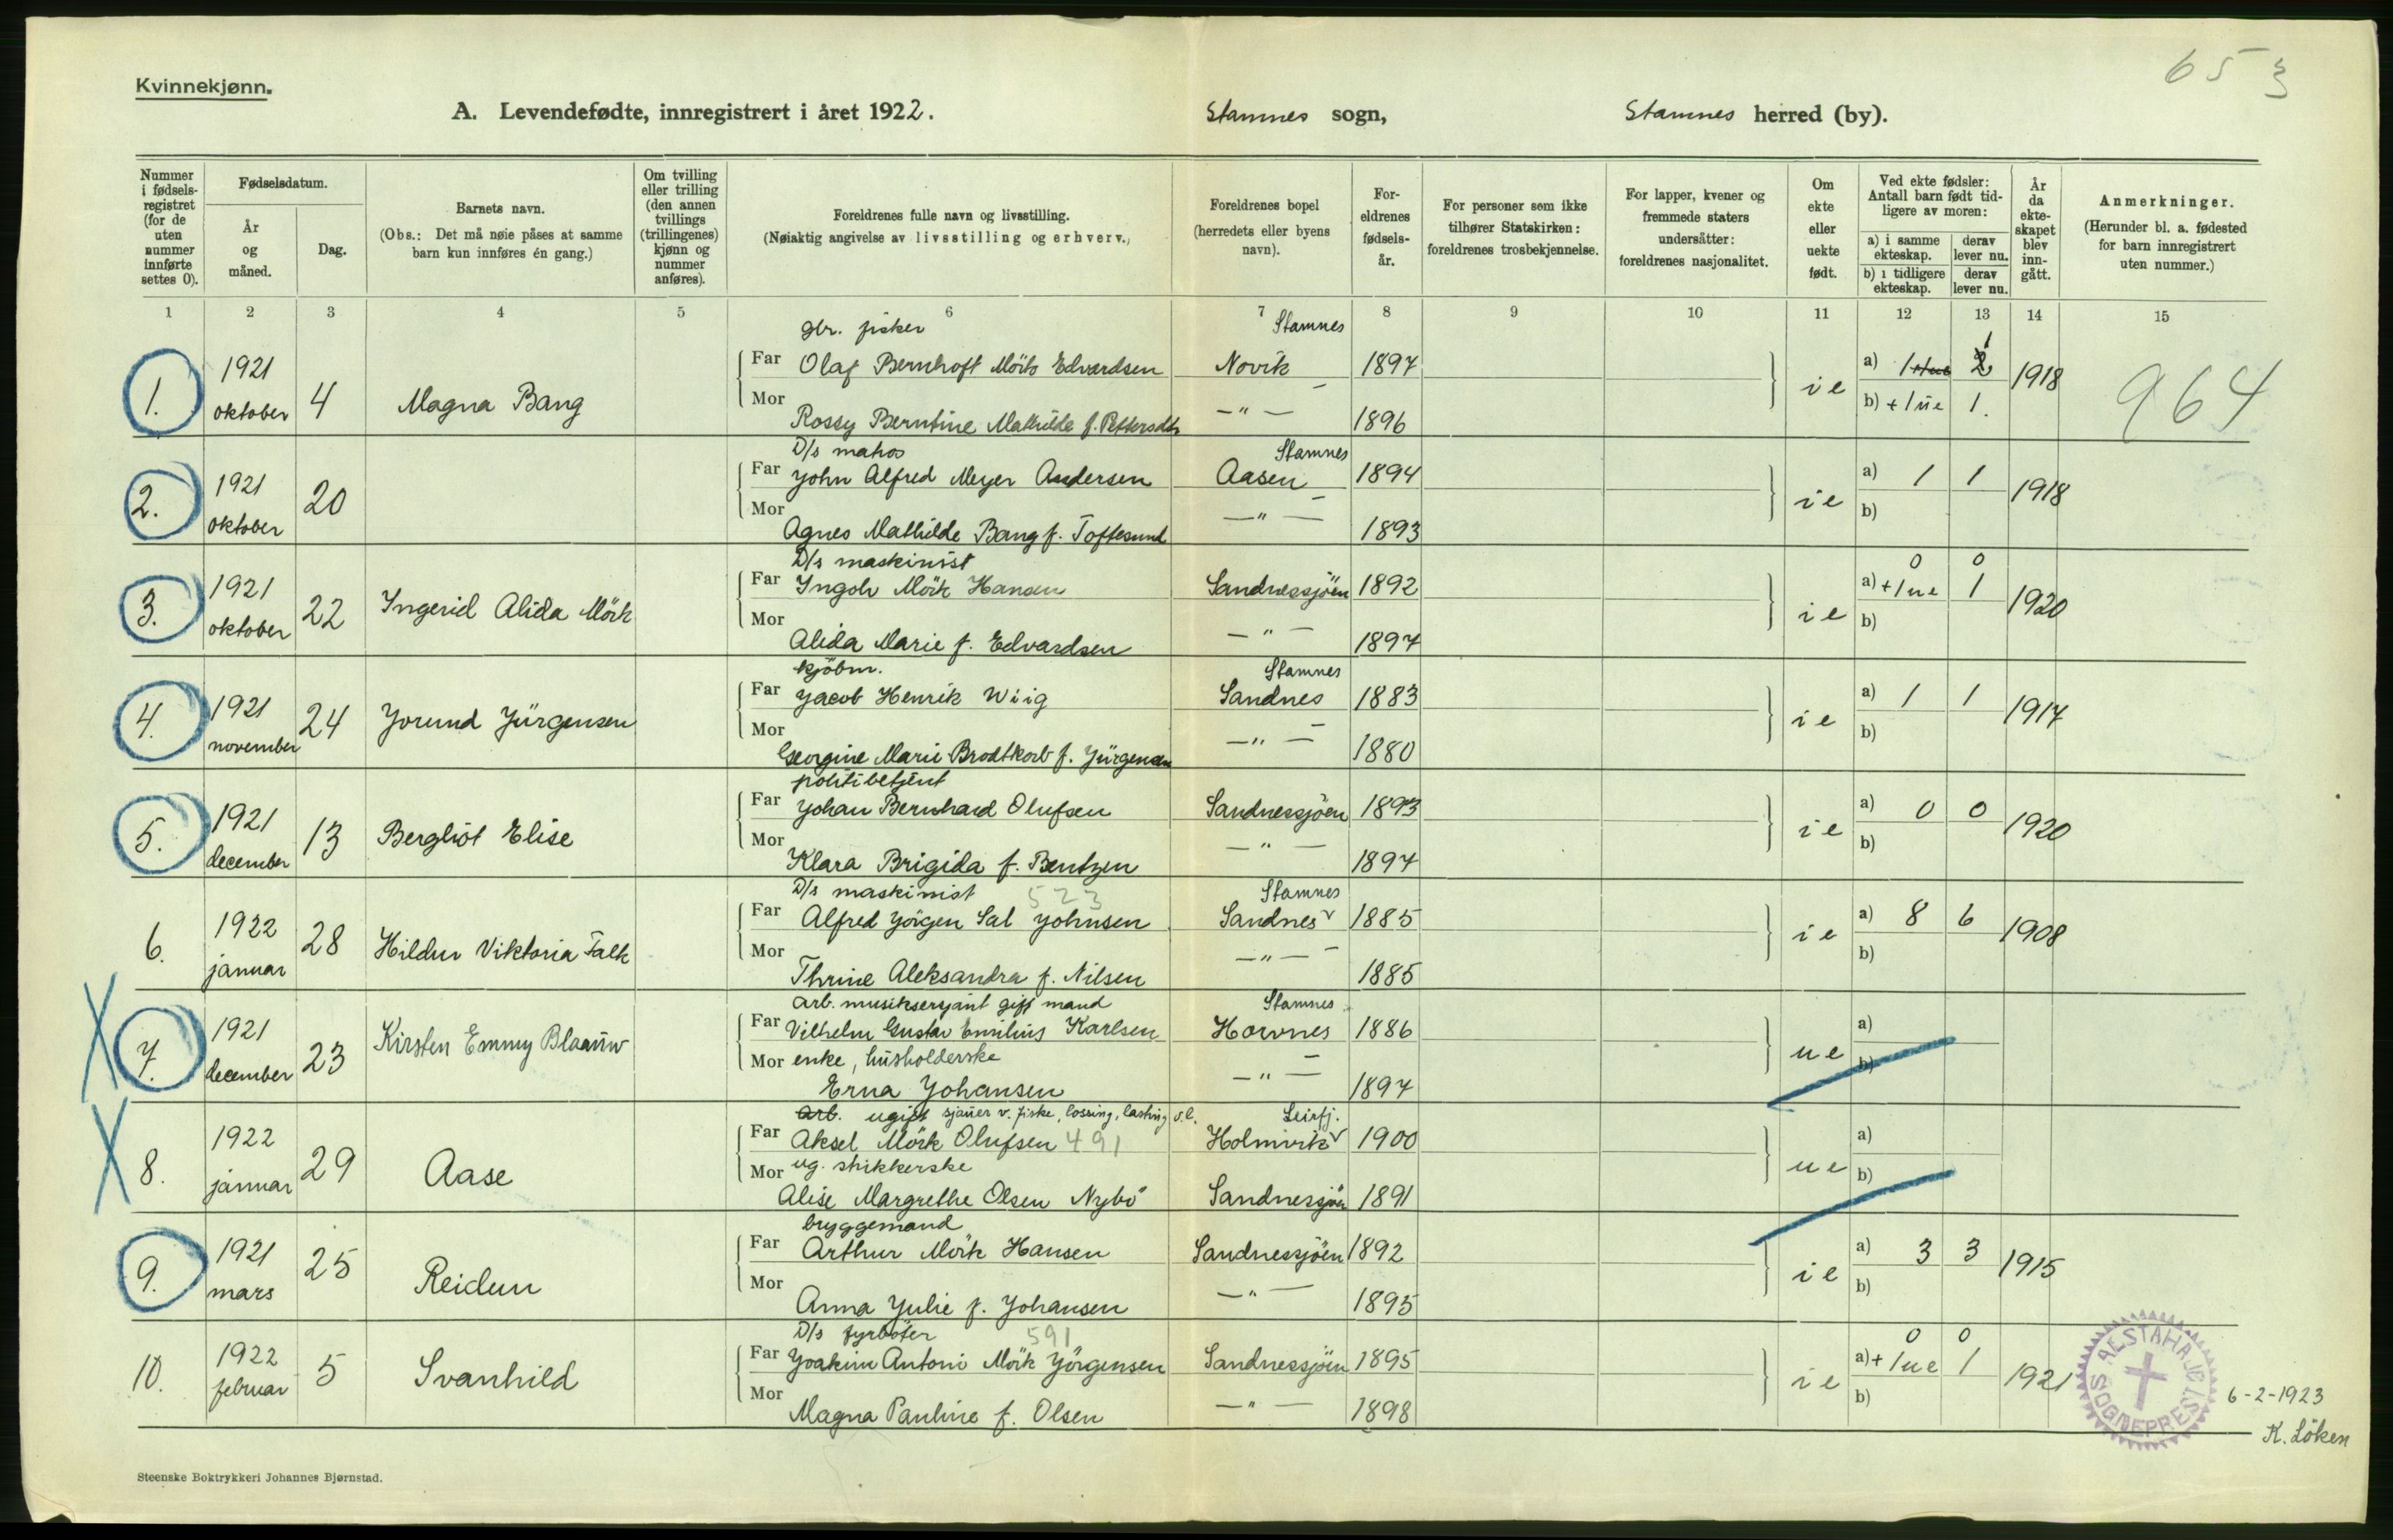 65 3
Kvinnekjønn.
A. Levendefødte, innregistrert i året 1922. Stamnes sogn, Stamnes herred (by).
Nummer i fødselsregistret (for de uten nummer innførte settes 0).
Fødselsdatum.
År og måned.
Dag.
Barnets navn.
(Obs.: Det må nøie påses at samme barn kun innføres én gang.)
Om tvilling eller trilling (den annen tvillings (trillingenes) kjønn og nummer anføres).
Foreldrenes fulle navn og livsstilling.
(Nøiaktig angivelse av livsstilling og erhverv.)
Foreldrenes bopel (herredets eller byens navn).
Foreldrenes fødselsår.
For personer som ikke tilhører Statskirken: foreldrenes trosbekjennelse.
For lapper, kvener og fremmede staters undersåtter: foreldrenes nasjonalitet.
Om ekte eller uekte født.
Ved ekte fødsler: Antall barn født tidligere av moren:
a) i samme ekteskap. derav lever nu.
b) i tidligere ekteskap. derav lever nu.
År da ekteskapet blev inngått.
Anmerkninger.
(Herunder bl. a. fødested for barn innregistrert uten nummer.)
1 2 3 4 5 6 7 8 9 10 11 12 13 14 15
gbr. fisker Stamnes
1. 1921 oktober 4 Magna Bang
Far Olaf Bernhoft Mörk Edvardsen Novik 1897 ie a) 1 2 1 1918 964
Mor Rossy Berntine Mathilde f. Pettersdtr —"— 1896 b) + 1 ue 1.
D/s matros Stamnes
2. 1921 oktober 20
Far John Alfred Meyer Andersen Aasen 1894 ie a) 1 1 1918
Mor Agnes Mathilde Bang f. Toftesund —"— 1893 b)
D/s maskinist 0 0
3. 1921 oktober 22 Ingerid Alida Mörk
Far Ingolv Mörk Hansen Sandnessjöen 1892 ie a) + 1 ue 1 1920
Mor Alida Marie f. Edvardsen —"— 1897 b)
kjöbm. Stamnes
4. 1921 november 24 Jorund Jürgensen
Far Jacob Henrik Wiig Sandnes 1883 ie a) 1 1 1917
Mor Georgine Marie Brodtkorb f. Jürgensen —"— 1880 b)
politibetjent
5. 1921 december 13 Bergliot Elise
Far Johan Bernhard Olufsen Sandnessjöen 1893 ie a) 0 0 1920
Mor Klara Brigida f. Bentzen —"— 1897 b)
D/s maskinist 523 Stamnes
6. 1922 januar 28 Hildur Viktoria Falk
Far Alfred Jörgen Sal Johnsen Sandnes 1885 ie a) 8 6 1908
Mor Thrine Aleksandra f. Nilsen —"— 1885 b)
arb. musiksersjant gift mand Stamnes
7. 1921 december 23 Kirsten Emmy Blaauw
Far Vilhelm Gustav Emilius Karlsen Horvnes 1886 ue a)
Mor enke, husholderske
Erna Johansen —"— 1897 b)
arb. ugift sjauer v. fiske, lossing, lasting o.l. Leirfj.
8. 1922 januar 29 Aase
Far Aksel Mörk Olufsen 491 Holmvik 1900 ue a)
Mor ug. strikkerske
Alise Margrethe Olsen Nybö Sandnessjöen 1891 b)
bryggemand
9. 1921 mars 25 Reidun
Far Arthur Mörk Hansen Sandnessjöen 1892 ie a) 3 3 1915
Mor Anna Julie f. Johansen —"— 1895 b)
D/s fyrböter 591 0 0
10. 1922 februar 5 Svanhild
Far Joakim Antoni Mörk Jörgensen Sandnessjöen 1895 ie a) + 1 ue 1 1921
Mor Magna Pauline f. Olsen —"— 1898 b)
ALSTAHAUG SOGNEPREST
6-2-1923
K. Löken
Steenske Boktrykkeri Johannes Bjørnstad.